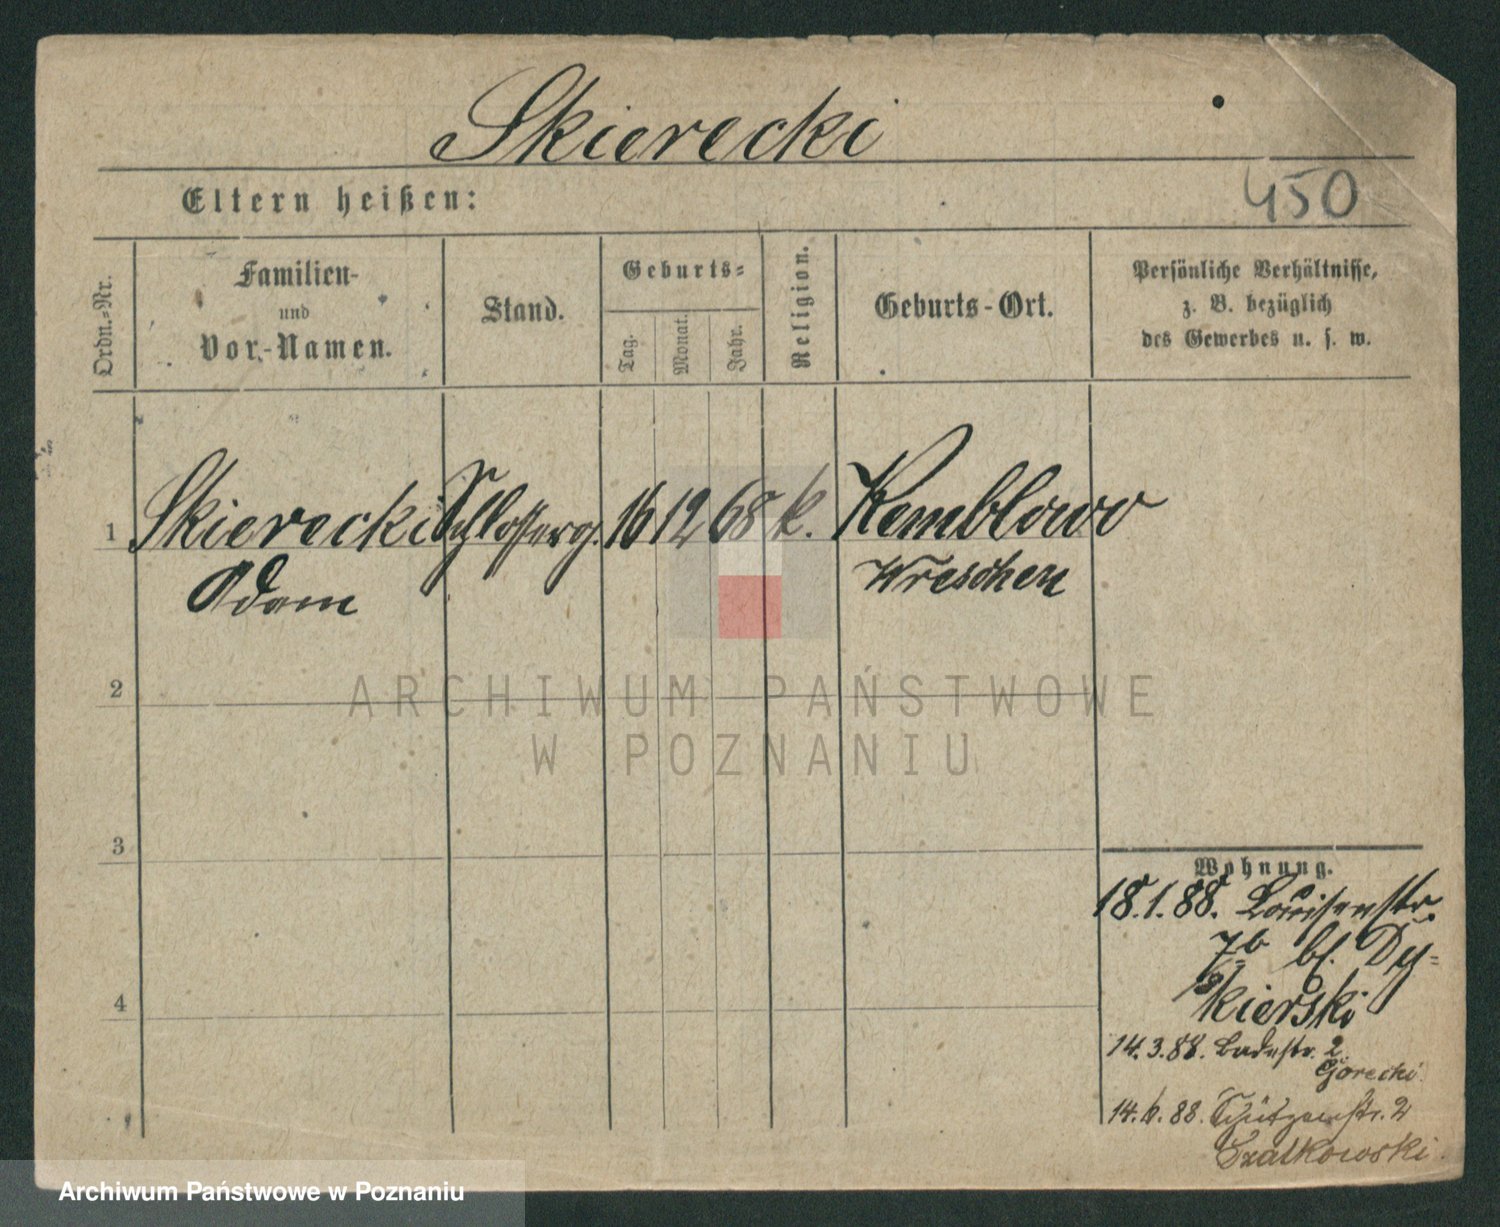 Skierecki
450
Eltern heißen:
Ordn.-Nr.
Familien-
und
Vor-Namen.
Stand.
Geburts-
Tag.
Monat.
Jahr.
Religion.
Geburts-Ort.
Persönliche Verhältnisse,
z. B. bezüglich
des Gewerbes u. s. w.
1 Skierecki Schlosserg. 16 12 68 k. Kemblowo
Adam Wreschen
2
3
4
Wohnung.
18.1.88. Louisenstr.
7b bf. Dy=
kierski
14.3.88. Badestr. 2.
Gorecki.
14.6.88. Schützenstr. 2
Szatkowski.
ARCHIWUM PAŃSTWOWE
W POZNANIU
Archiwum Państwowe w Poznaniu